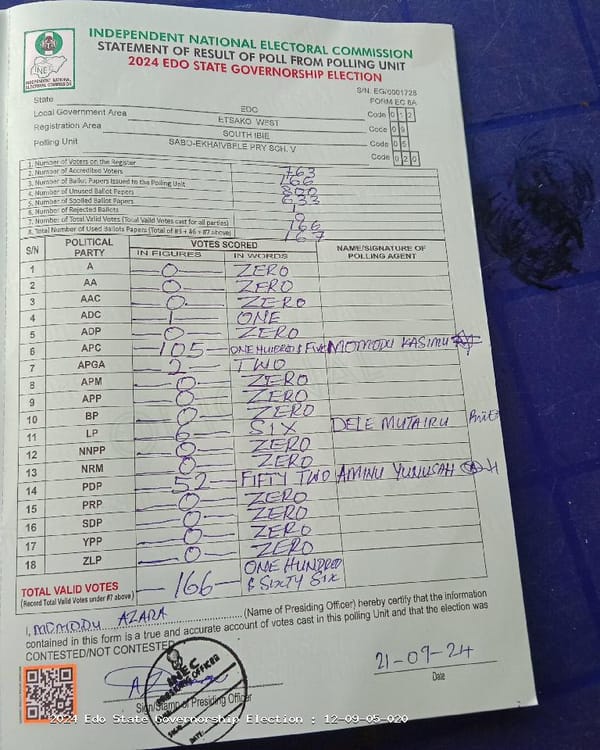 INDEPENDENT NATIONAL ELECTORAL COMMISSION
STATEMENT OF RESULT OF POLL FROM POLLING UNIT
2024 EDO STATE GOVERNORSHIP ELECTION
INEC
INDEPENDENT NATIONAL ELECTORAL COMMISSION
S/N. EG/0001728
FORM EC 8A
State EDO Code 0 1 2
Local Government Area ETSAKO WEST Code 0 9
Registration Area SOUTH IBIE Code 0 5
Polling Unit SABO-EKHAIVBELE PRY SCH. V Code 0 2 0
1. Number of Voters on the Register 763
2. Number of Accredited Voters 166
3. Number of Ballot Papers Issued to the Polling Unit 800
4. Number of Unused Ballot Papers 633
5. Number of Spoiled Ballot Papers 1
6. Number of Rejected Ballots 0
7. Number of Total Valid Votes (Total Valid Votes cast for all parties) 166
8. Total Number of Used Ballots Papers (Total of #5 + #6 + #7 above) 167
S/N POLITICAL PARTY VOTES SCORED NAME/SIGNATURE OF POLLING AGENT
IN FIGURES IN WORDS
1 A 0 ZERO
2 AA 0 ZERO
3 AAC 0 ZERO
4 ADC 1 ONE
5 ADP 0 ZERO
6 APC 105 ONE HUNDRED & FIVE MOMODU KASIMU
7 APGA 2 TWO
8 APM 0 ZERO
9 APP 0 ZERO
10 BP 0 ZERO
11 LP 6 SIX DELE MUTAIRU
12 NNPP 0 ZERO
13 NRM 0 ZERO
14 PDP 52 FIFTY TWO AMINU YUNUSAH
15 PRP 0 ZERO
16 SDP 0 ZERO
17 YPP 0 ZERO
18 ZLP 0 ZERO
TOTAL VALID VOTES 166 ONE HUNDRED & SIXTY SIX
(Record Total Valid Votes under #7 above)
I, MOMODU AZARA (Name of Presiding Officer) hereby certify that the information
contained in this form is a true and accurate account of votes cast in this polling Unit and that the election was
CONTESTED/NOT CONTESTED
INEC
PRESIDING OFFICER
DATE:
21-09-24
Sign/Stamp of Presiding Officer
Date
2024 Edo State Governorship Election : 12-09-05-020